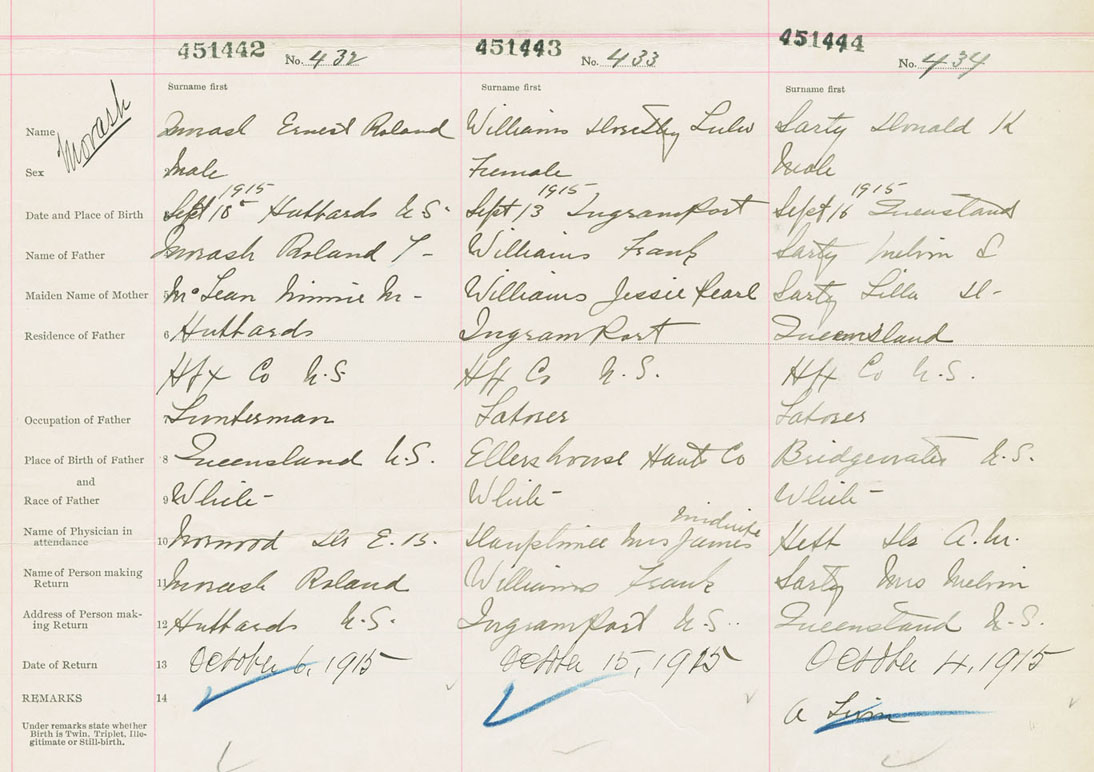 451442 No. 432 451443 No. 433 451444 No. 434
Surname first Surname first Surname first
Morash
Name Morash Ernest Roland Williams Dorothy Lulu Sarty Donald K
Sex Male Female Male
1915 1915 1915
Date and Place of Birth Sept 18 Hubbards N.S. Sept 13 Ingram Port Sept 16 Queensland
Name of Father Morash Roland T- Williams Frank Sarty Melvin S
Maiden Name of Mother 5 McLean Minnie M- Williams Jessie Pearl Sarty Lilla D-
Residence of Father 6 Hubbards Ingram Port Queensland
Hfx Co N.S. Hfx Co N.S. Hfx Co N.S.
Occupation of Father 7 Lumberman Laborer Laborer
Place of Birth of Father 8 Queensland N.S. Ellershouse Hants Co Bridgewater N.S.
and
Race of Father 9 White- White- White-
midwife
Name of Physician in
attendance 10 Morwood Dr E. B. Mrs James Dr A. M.
Name of Person making
Return 11 Morash Roland Williams Frank Sarty Mrs Melvin
Address of Person mak-
ing Return 12 Hubbards N.S. Ingram Port N.S. Queensland N.S.
Date of Return 13 October 6, 1915 October 15, 1915 October 4, 1915
REMARKS 14
A Twin
Under remarks state whether
Birth is Twin, Triplet, Ille-
gitimate or Still-birth.